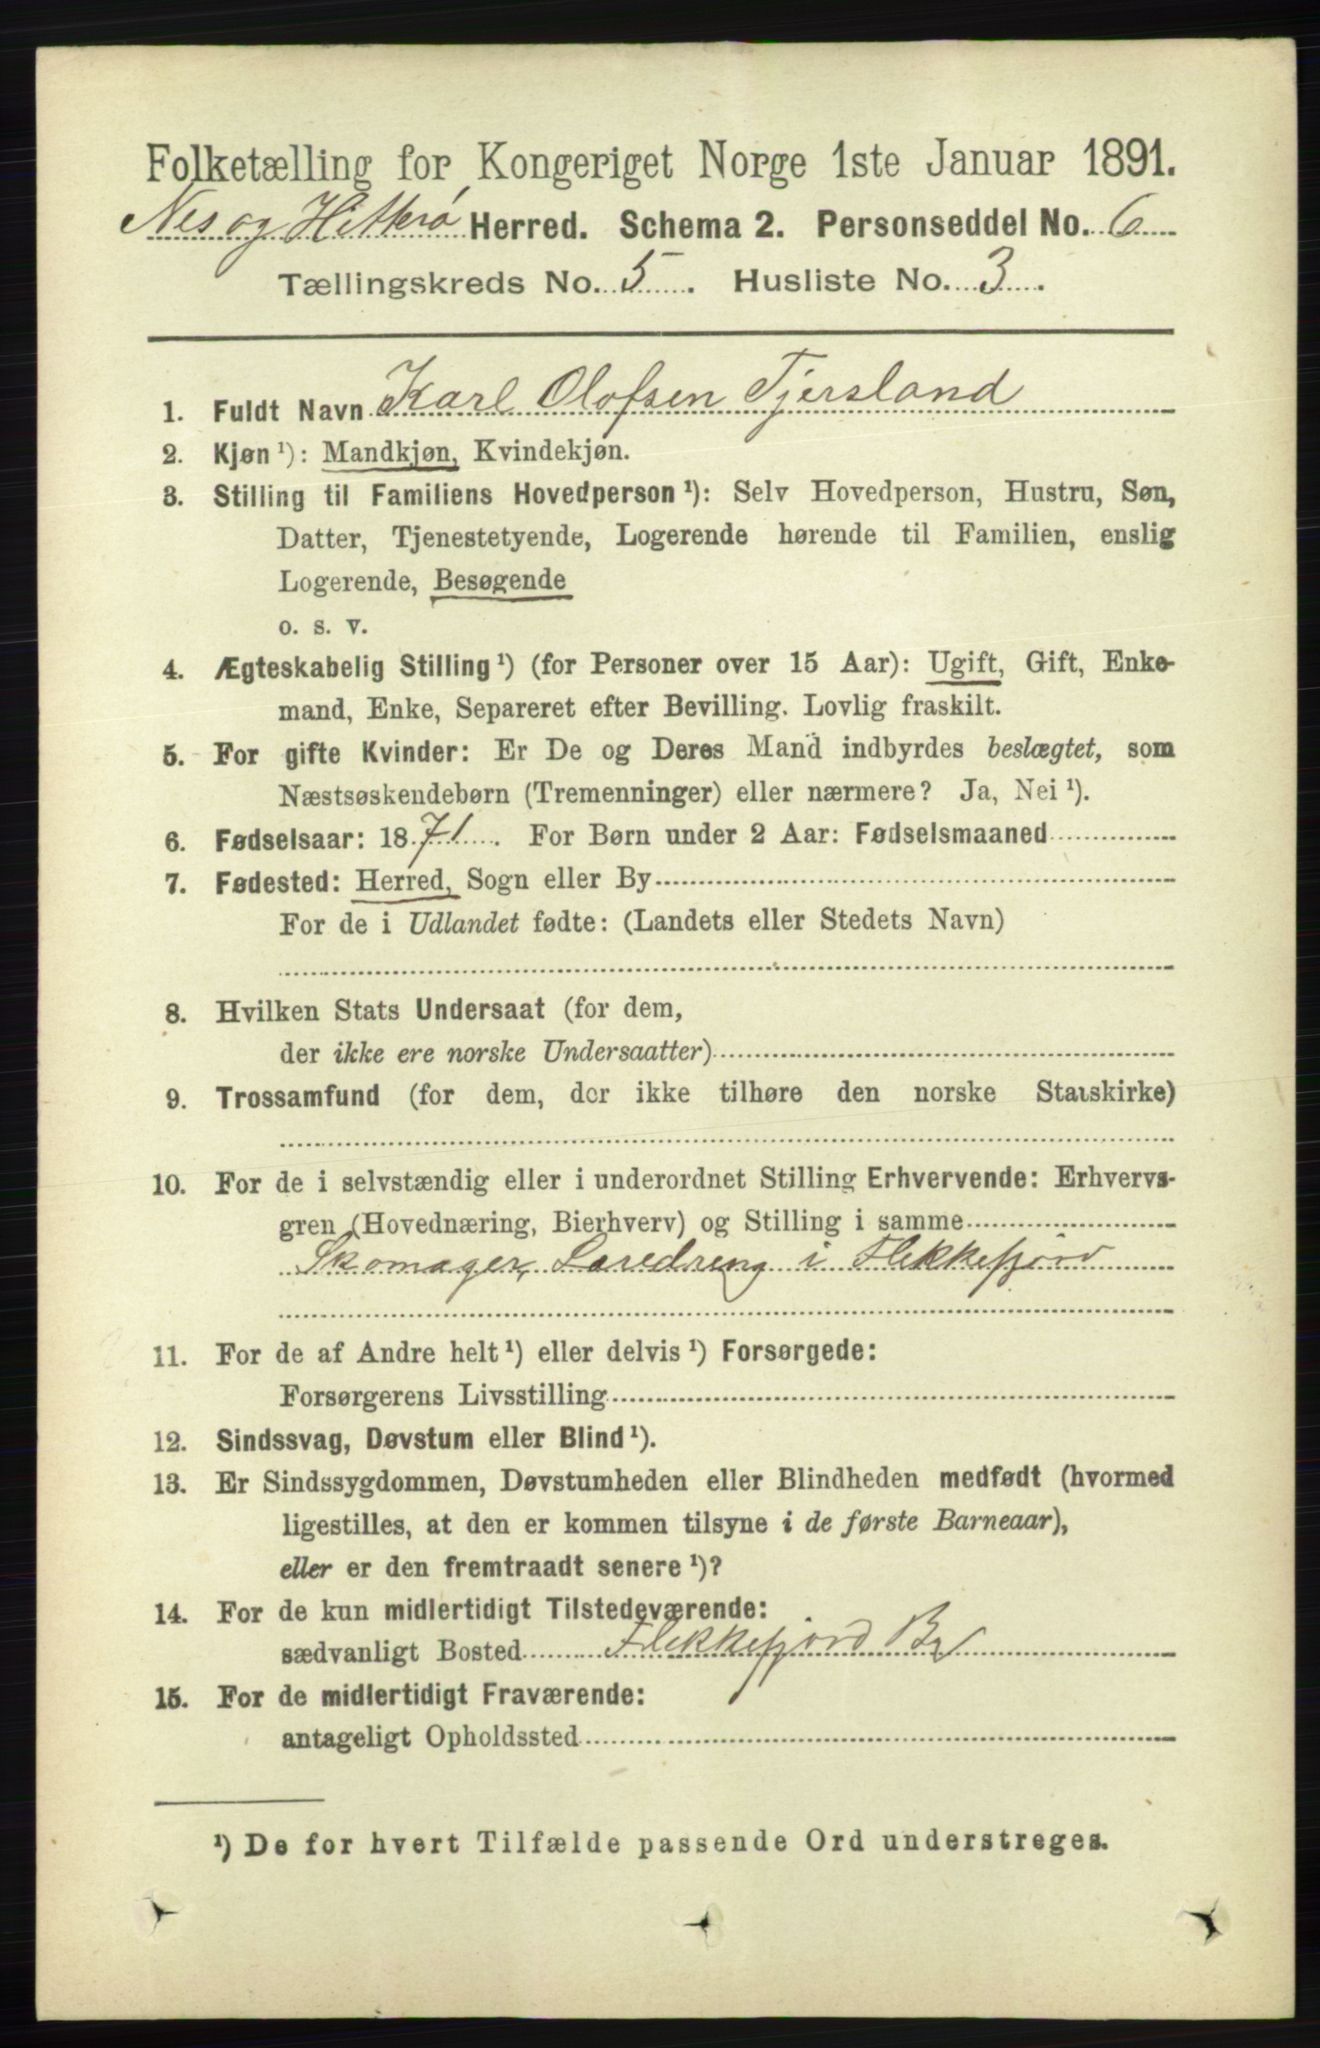 Folketælling for Kongeriget Norge 1ste Januar 1891.
Nes og Hitterø Herred. Schema 2. Personseddel No. 6
Tællingskreds No. 5. Husliste No. 3.
1. Fuldt Navn Karl Olofsen Tjersland
2. Kjøn¹): Mandkjøn, Kvindekjøn.
3. Stilling til Familiens Hovedperson¹): Selv Hovedperson, Hustru, Søn,
Datter, Tjenestetyende, Logerende hørende til Familien, enslig
Logerende, Besøgende
o. s. v.
4. Ægteskabelig Stilling¹) (for Personer over 15 Aar): Ugift, Gift, Enke-
mand, Enke, Separeret efter Bevilling. Lovlig fraskilt.
5. For gifte Kvinder: Er De og Deres Mand indbyrdes beslægtet, som
Næstsøskendebørn (Tremenninger) eller nærmere? Ja, Nei¹).
6. Fødselsaar: 1871. For Børn under 2 Aar: Fødselsmaaned
7. Fødested: Herred, Sogn eller By
For de i Udlandet fødte: (Landets eller Stedets Navn)
8. Hvilken Stats Undersaat (for dem,
der ikke ere norske Undersaatter)
9. Trossamfund (for dem, der ikke tilhøre den norske Statskirke)
10. For de i selvstændig eller i underordnet Stilling Erhvervende: Erhvervs-
gren (Hovednæring, Bierhverv) og Stilling i samme
Skomager, Læredreng i Flekkefjord
11. For de af Andre helt¹) eller delvis¹) Forsørgede:
Forsørgerens Livsstilling
12. Sindssvag, Døvstum eller Blind¹).
13. Er Sindssygdommen, Døvstumheden eller Blindheden medfødt (hvormed
ligestilles, at den er kommen tilsyne i de første Barneaar),
eller er den fremtraadt senere¹)?
14. For de kun midlertidigt Tilstedeværende:
sædvanligt Bosted Flekkefjord By
15. For de midlertidigt Fraværende:
antageligt Opholdssted
¹) De for hvert Tilfælde passende Ord understreges.